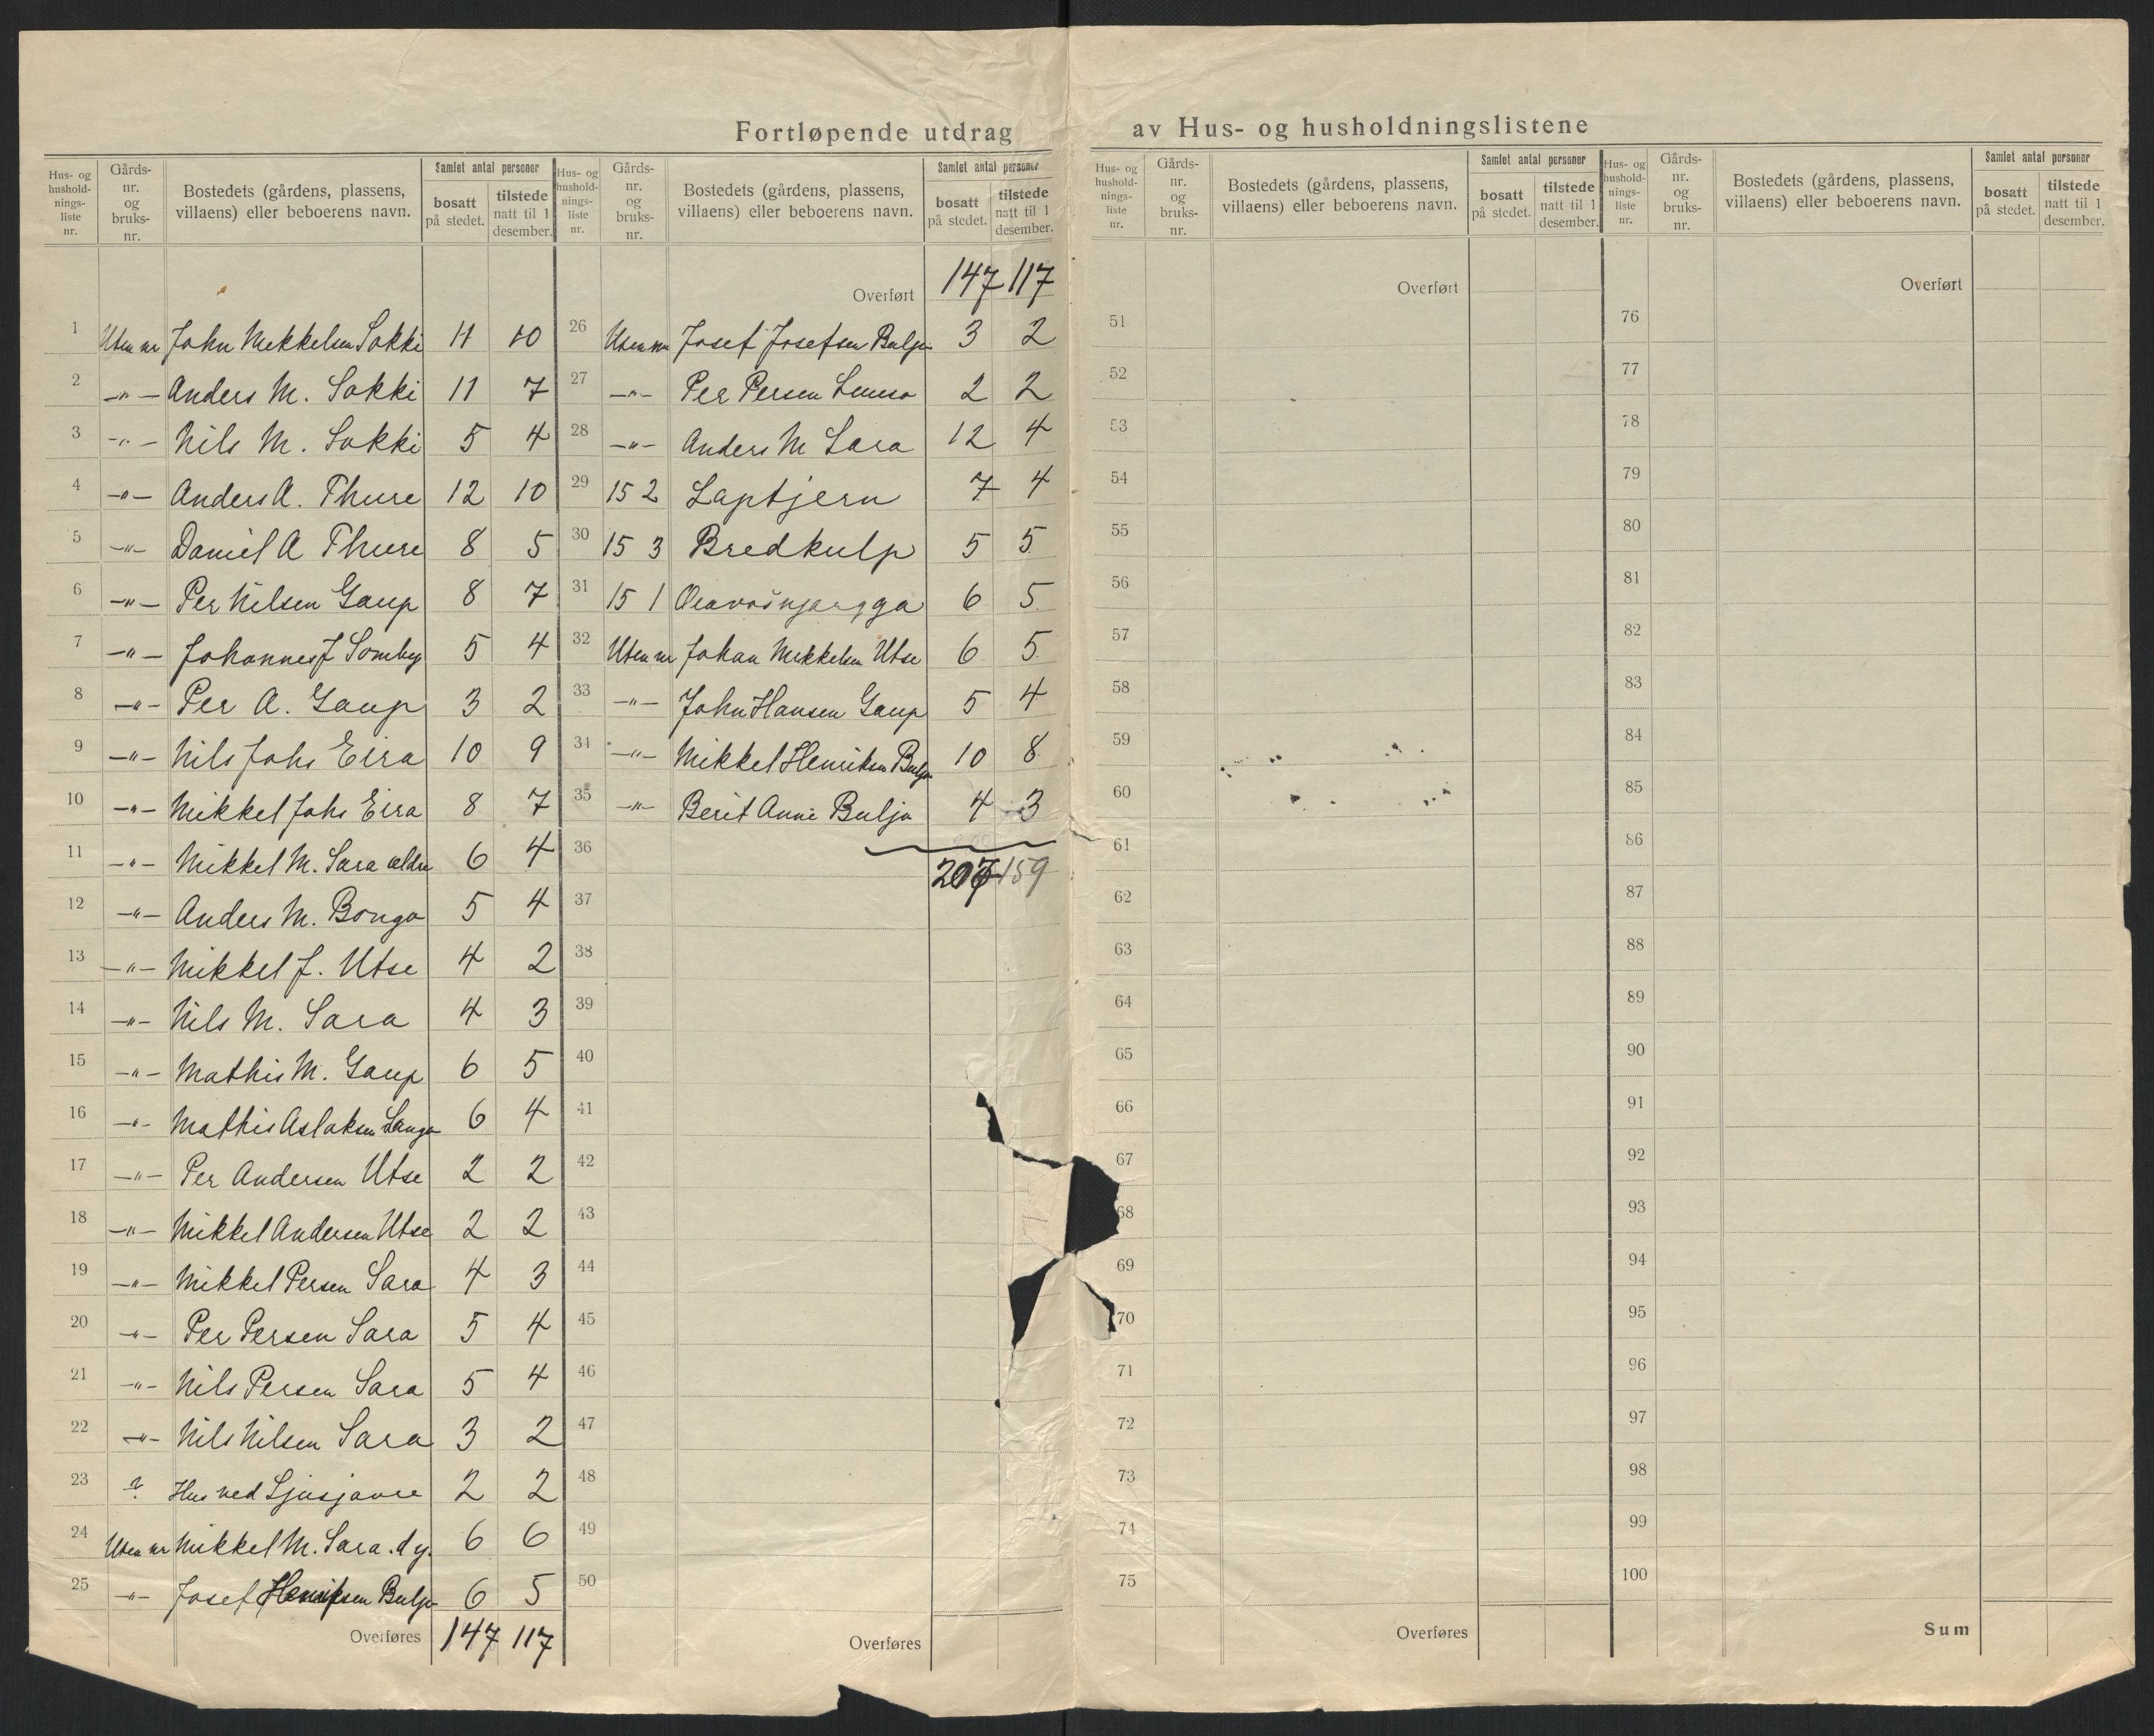 Fortløpende utdrag av Hus- og husholdningslistene
Hus- og hushold- nings- liste nr.
Gårds- nr. og bruks- nr.
Bostedets (gårdens, plassens, villaens) eller beboerens navn.
Samlet antal personer
bosatt på stedet.
tilstede natt til 1 desember.
1 Uten nr John Mekkelsen Sokki 11 10
2 —"— Anders M. Sokki 11 7
3 —"— Nils M. Sokki 5 4
4 —"— Anders A. Thure 12 10
5 —"— Daniel A Thure 8 5
6 —"— Per Nilsen Gaup 8 7
7 —"— Johannes J Somby 5 4
8 —"— Per A. Gaup 3 2
9 —"— Nils Johs Eira 10 9
10 —"— Mikkel Johs Eira 8 7
11 —"— Mikkel M. Sara ældre 6 4
12 —"— Anders M. Bongo 5 4
13 —"— Mikkel J. Utse 4 2
14 —"— Nils M. Sara 4 3
15 —"— Mathis M. Gaup 6 5
16 —"— Mathis Aslaksen 6 4
17 —"— Per Andersen Utse 2 2
18 —"— Mikkel Andersen Utse 2 2
19 —"— Mikkel Persen Sara 4 3
20 —"— Per Persen Sara 5 4
21 —"— Nils Persen Sara 5 4
22 —"— Nils Nilsen Sara 3 2
23 ? Hus ved 2 2
24 Uten nr Mikkel M. Sara. d y. 6 6
25 —"— Josef Henriksen Buljo 6 5
Overføres 147 117
Hus- og hushold- nings- liste nr.
Gårds- nr. og bruks- nr.
Bostedets (gårdens, plassens, villaens) eller beboerens navn.
Samlet antal personer
bosatt på stedet.
tilstede natt til 1 desember.
Overført 147 117
26 Uten nr Josef Josefsen Buljo 3 2
27 —"— Per Persen 2 2
28 —"— Anders M Sara 12 4
29 15 2 Lapptjern 7 4
30 15 3 Bredkulp 5 5
31 15 1 6 5
32 Uten nr Johan Mikkelsen Utse 6 5
33 —"— John Hansen Gaup 5 4
34 —"— Mikkel Henriksen Buljo 10 8
35 —"— Berit Anne Buljo 4 3
36
207 159
37
38
39
40
41
42
43
44
45
46
47
48
49
50
Overføres
Hus- og hushold- nings- liste nr.
Gårds- nr. og bruks- nr.
Bostedets (gårdens, plassens, villaens) eller beboerens navn.
Samlet antal personer
bosatt på stedet.
tilstede natt til 1 desember.
Overført
51
52
53
54
55
56
57
58
59
60
61
62
63
64
65
66
67
68
69
70
71
72
73
74
75
Overføres
Hus- og hushold- nings- liste nr.
Gårds- nr. og bruks- nr.
Bostedets (gårdens, plassens, villaens) eller beboerens navn.
Samlet antal personer
bosatt på stedet.
tilstede natt til 1 desember.
Overført
76
77
78
79
80
81
82
83
84
85
86
87
88
89
90
91
92
93
94
95
96
97
98
99
100
Sum